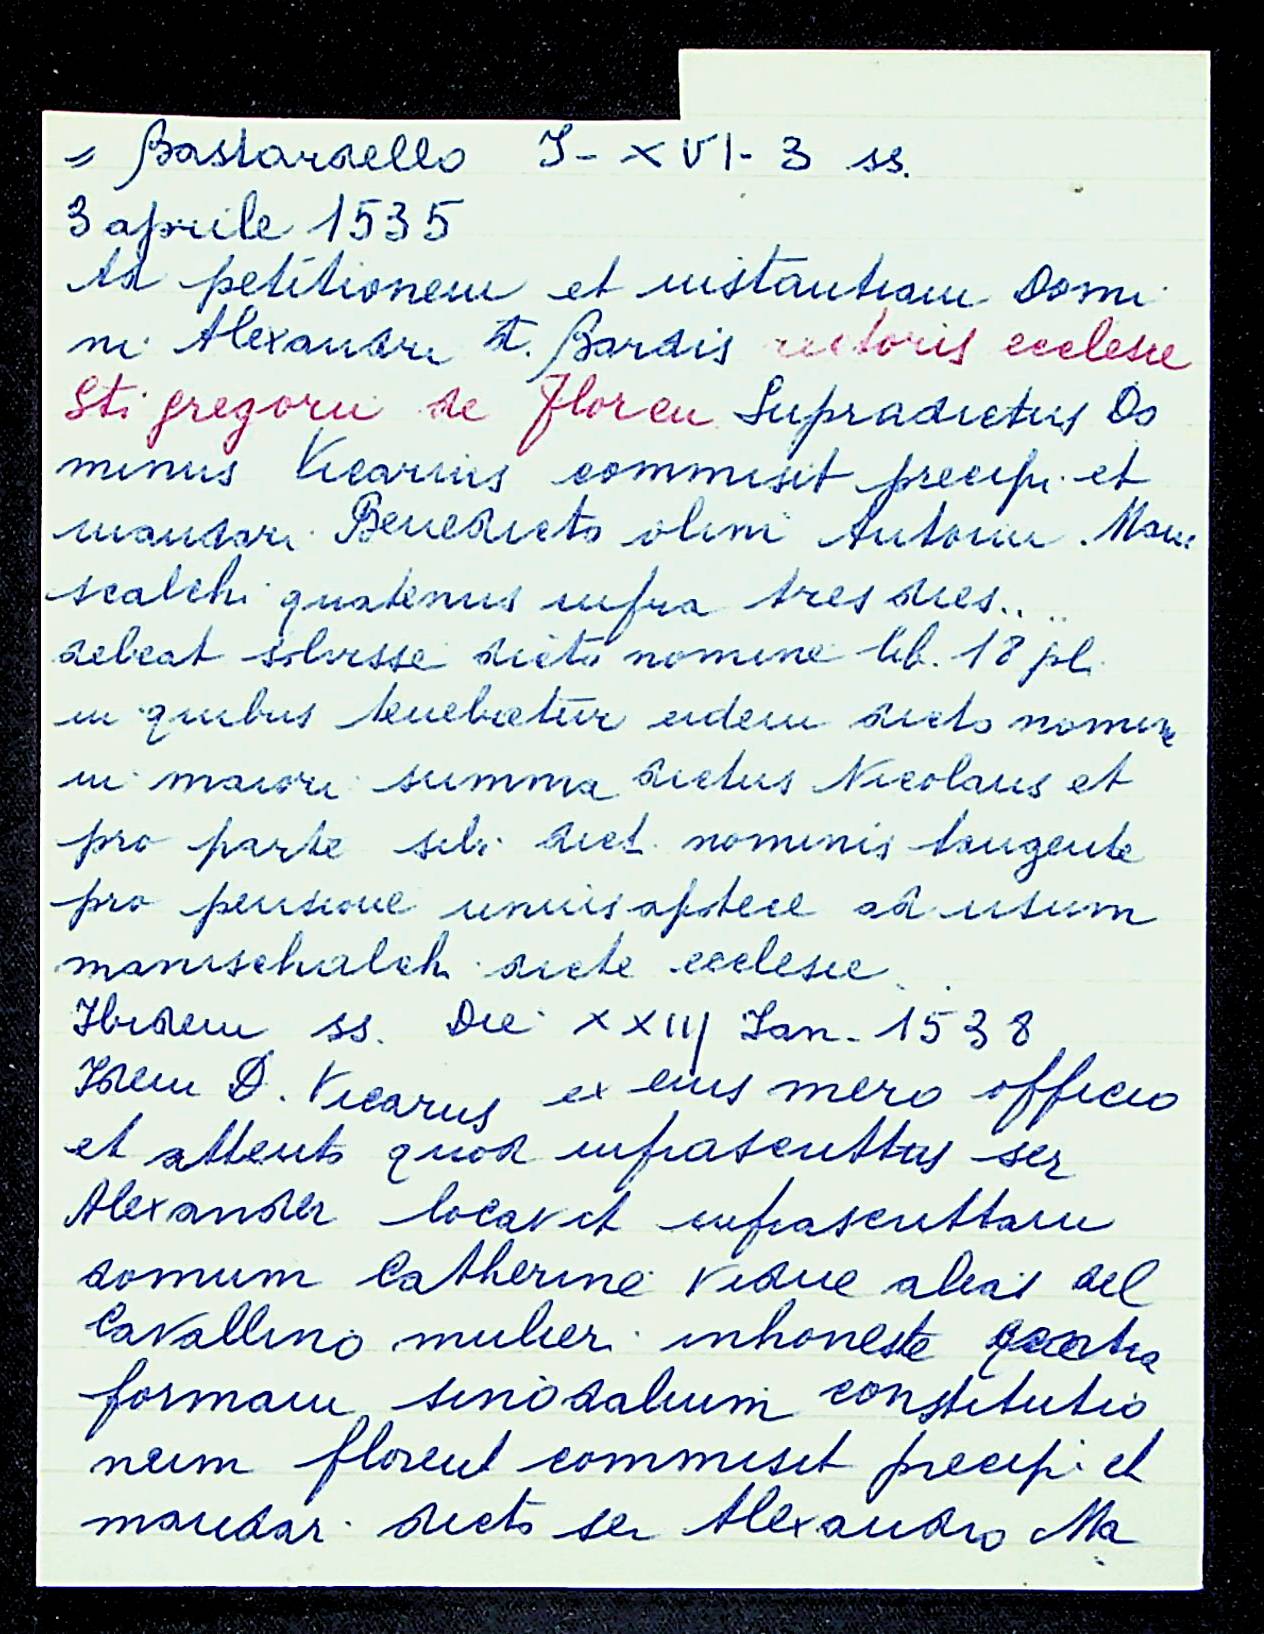 = Bastardello I-XVI-3 ss.
3 aprile 1535
Ad petitionem et instantiam Domi
ni Alexandri d. Bardis rectoris ecclesie
Sti gregorii de Floren Supradictus Do
minus Vicarius commisit precipi et
mandari Benedicto olim Antonii Mani
scalchi quatenus infra tres dies....
debeat solvisse dicto nomine lib. 18 pl.
in quibus tenebatur eidem dicto nomine
in maiori summa dictus Nicolaus et
pro parte sibi dict. nominis tangente
pro pensione unius apotece ad usum
manischalchi dicte ecclesie.
Ibidem ss. Die XXIIJ Ian. 1538
Idem D. Vicarus ex eius mero officio
et attento quod infrascrittus ser
Alexander locavit infrascrittam
domum Catherine vidue alias del
Cavallino mulieri inhoneste contra
formam sinodalium constitutio
num florent commisit precipi et
mandar. dicto ser Alexandro Ma